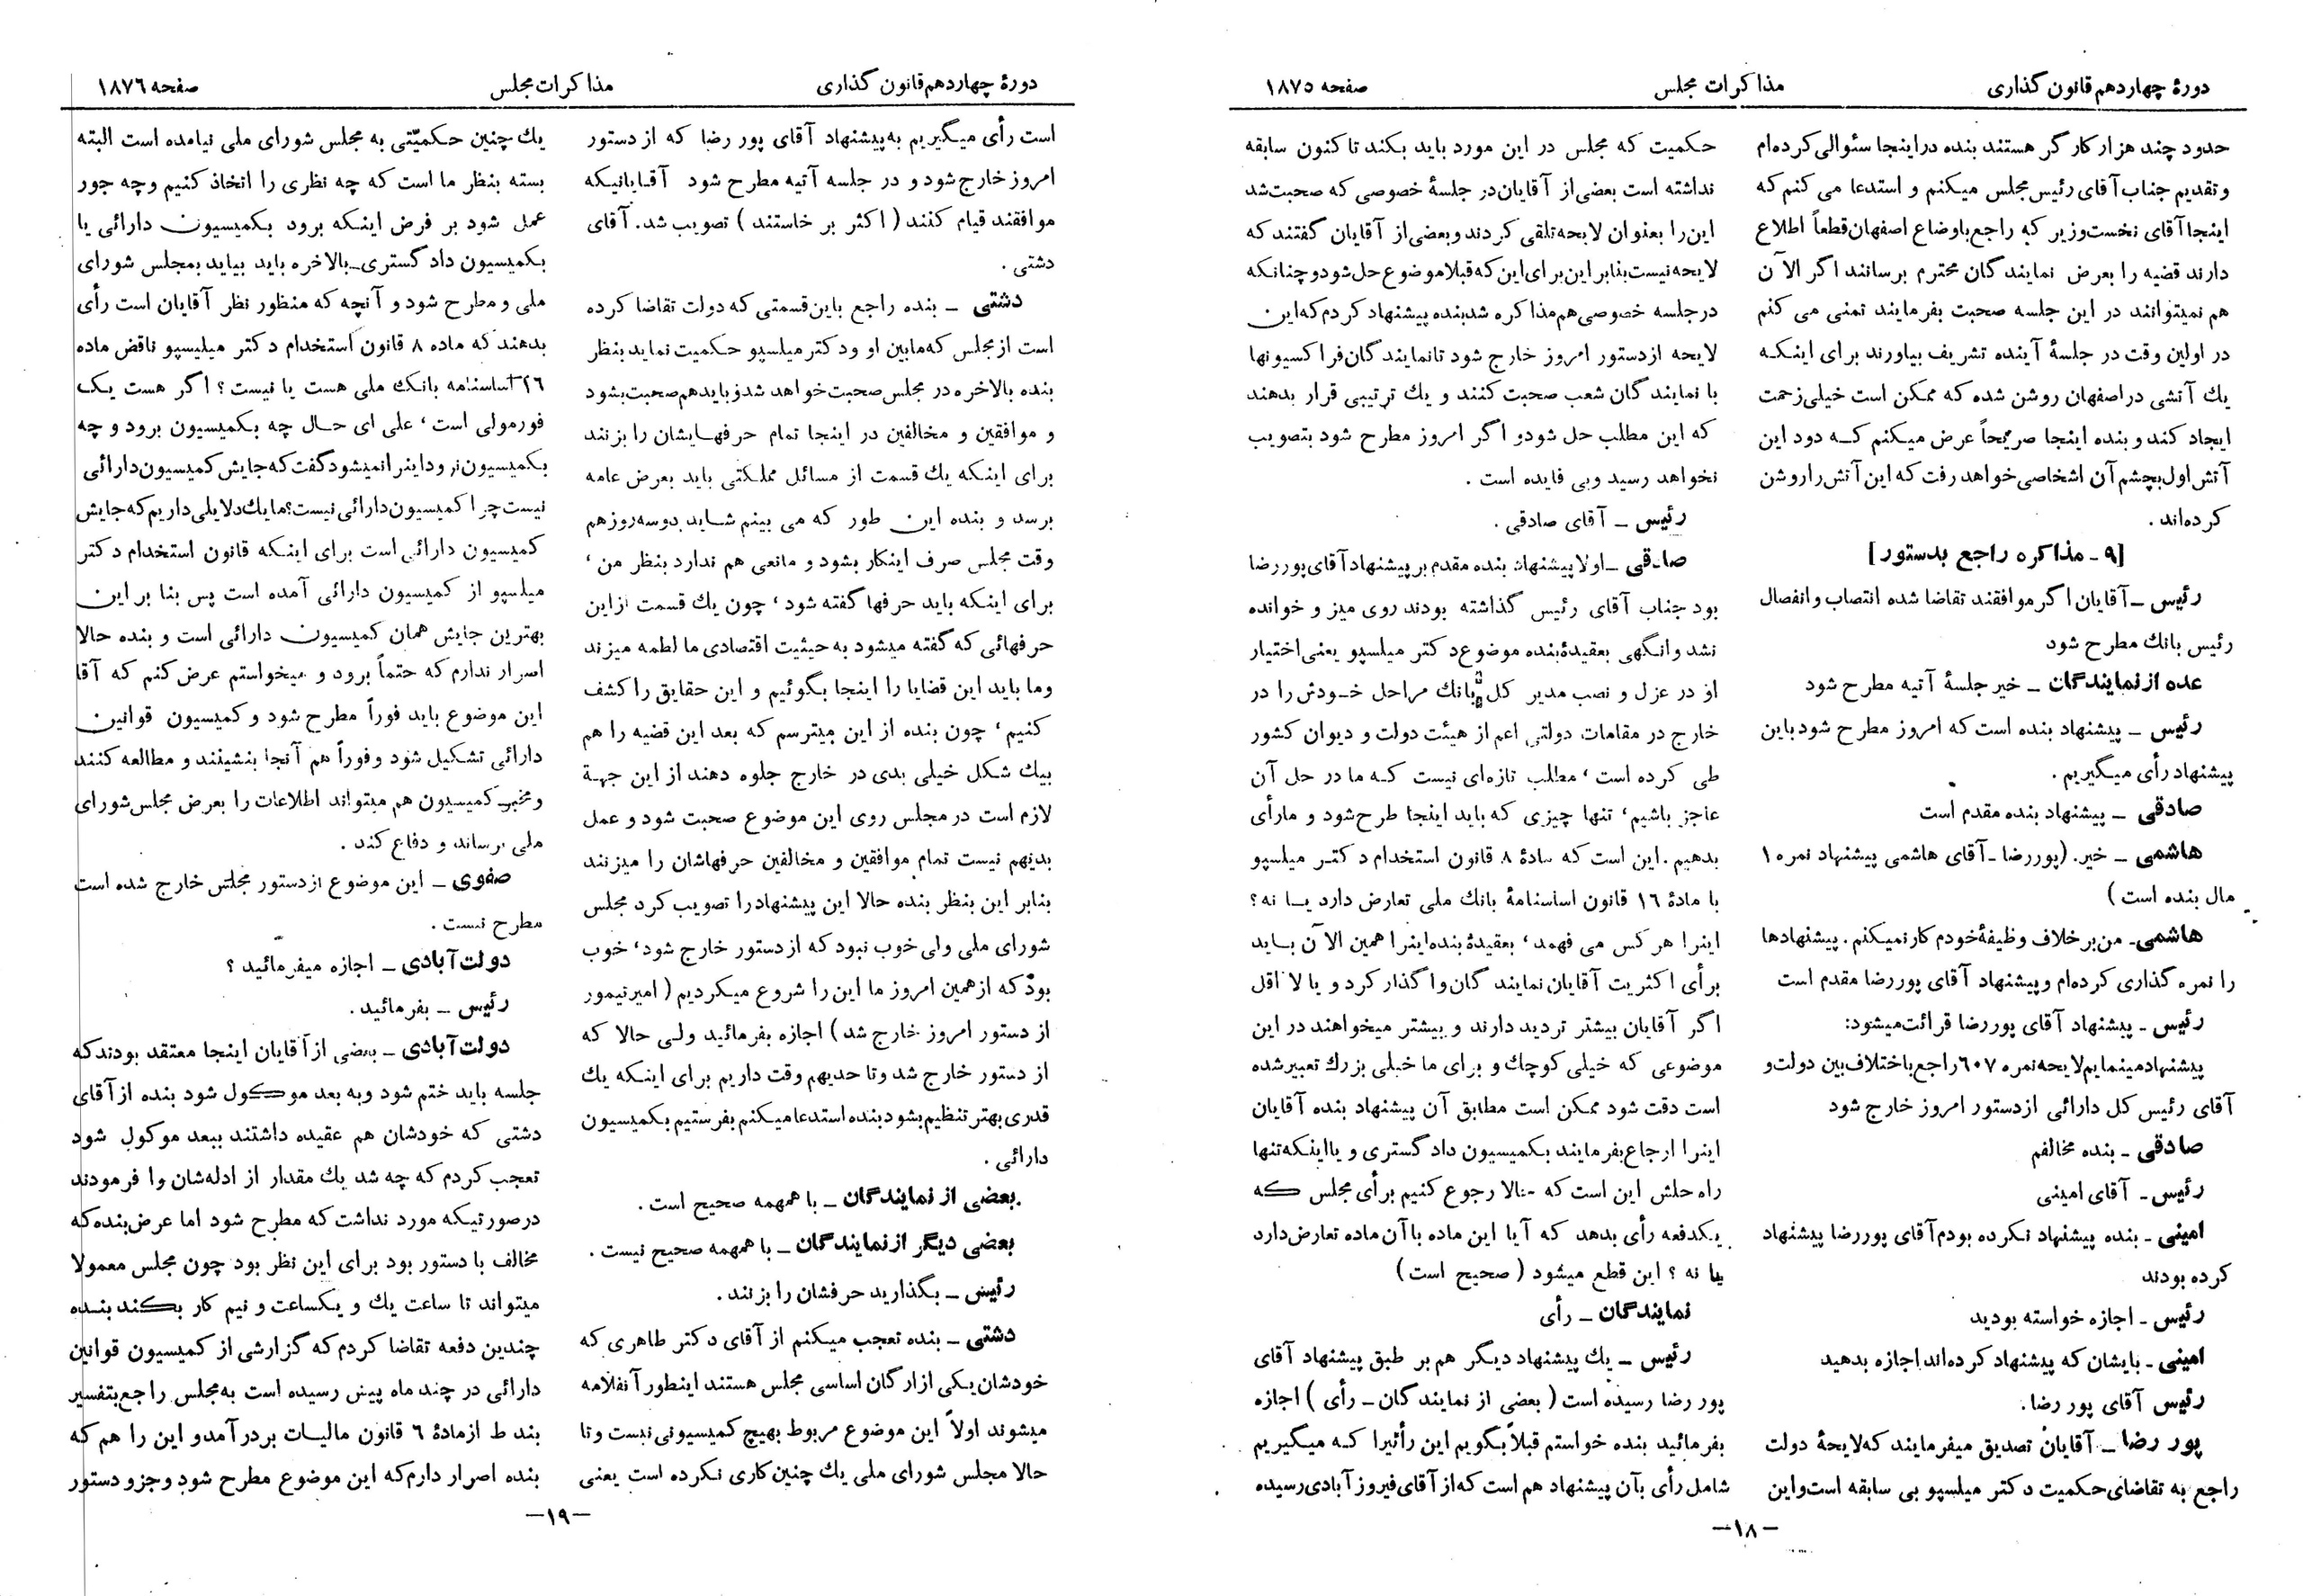 دورهٔ چهاردهم قانون گذاری
مذاکرات مجلس
صفحه ۱۸۷۵
حدود چند هزار کارگر هستند بنده در اینجا سئوالی کرده‌ام
و تقدیم جناب آقای رئیس مجلس میکنم و استدعا می کنم که
اینجا آقای نخست‌وزیر که راجع باوضاع اصفهان قطعاً اطلاع
دارند قضیه را بعرض نمایندگان محترم برسانند اگر الآن
هم نمیتوانند در این جلسه صحبت بفرمایند تمنی می کنم
در اولین وقت در جلسهٔ آینده تشریف بیاورند برای اینکه
یك آتشی در اصفهان روشن شده که ممکن است خیلی زحمت
ایجاد کند و بنده اینجا صریحاً عرض میکنم کـه دود این
آتش اول بچشم آن اشخاصی خواهد رفت که این آتش را روشن
کرده‌اند .
[۹ ـ مذاکره راجع بدستور]
رئیس ـ آقایان اگر موافقند تقاضا شده انتصاب و انفصال
رئیس بانك مطرح شود
عده از نمایندگان ـ خیر جلسهٔ آتیه مطرح شود
رئیس ـ پیشنهاد بنده است که امروز مطرح شود باین
پیشنهاد رأی میگیریم .
صادقی ـ پیشنهاد بنده مقدم است
هاشمی ـ خیر. (پوررضا ـ آقای هاشمی پیشنهاد نمره ۱
مال بنده است )
هاشمی ـ من برخلاف وظیفهٔ خودم کار نمیکنم . پیشنهادها
را نمره گذاری کرده‌ام و پیشنهاد آقای پوررضا مقدم است
رئیس ـ پیشنهاد آقای پوررضا قرائت میشود:
پیشنهاد مینمایم لایحه نمره ۶۰۷ راجع باختلاف بین دولت و
آقای رئیس کل دارائی از دستور امروز خارج شود
صادقی ـ بنده مخالفم
رئیس ـ آقای امینی
امینی ـ بنده پیشنهاد نکرده بودم آقای پوررضا پیشنهاد
کرده بودند
رئیس ـ اجازه خواسته بودید
امینی ـ بایشان که پیشنهاد کرده‌اند اجازه بدهید
رئیس آقای پور رضا.
پور رضا ـ آقایان تصدیق میفرمایند که لایحهٔ دولت
راجع به تقاضای حکمیت دکتر میلسپو بی سابقه است و این
حکمیت که مجلس در این مورد باید بکند تا کنون سابقه
نداشته است بعضی از آقایان در جلسهٔ خصوصی که صحبت شد
این را بعنوان لایحه تلقی کردند و بعضی از آقایان گفتند که
لایحه نیست بنابراین برای این که قبلا موضوع حل شود و چنانکه
در جلسه خصوصی هم مذاکره شد بنده پیشنهاد کردم که این
لایحه از دستور امروز خارج شود تا نمایندگان فراکسیونها
با نمایندگان شعب صحبت کنند و یك ترتیبی قرار بدهند
که این مطلب حل شود و اگر امروز مطرح شود بتصویب
نخواهد رسید و بی فایده است .
رئیس ـ آقای صادقی .
صادقی ـ اولا پیشنهاد بنده مقدم بر پیشنهاد آقای پوررضا
بود جناب آقای رئیس گذاشته بودند روی میز و خوانده
نشد وانگهی بعقیدهٔ بنده موضوع دکتر میلسپو یعنی اختیار
او در عزل و نصب مدیر کل بانك مراحل خـودش را در
خارج در مقامات دولتی اعم از هیئت دولت و دیوان کشور
طی کرده است ، مطلب تازه‌ای نیست کـه ما در حل آن
عاجز باشیم ، تنها چیزی که باید اینجا طرح شود و ما رأی
بدهیم . این است که مادهٔ ۸ قانون استخدام دکتـر میلسپو
با مادهٔ ۱۶ قانون اساسنامهٔ بانك ملی تعارض دارد یـا نه ؟
اینرا هر کس می فهمد ، بعقیدهٔ بنده اینرا همین الآن بـاید
برأی اکثریت آقایان نمایندگان واگذار کرد و یا لااقل
اگر آقایان بیشتر تردید دارند و بیشتر میخواهند در این
موضوعی که خیلی کوچك و برای ما خیلی بزرك تعبیر شده
است دقت شود ممکن است مطابق آن پیشنهاد بنده آقایان
اینرا ارجاع بفرمایند بکمیسیون دادگستری و یا اینکه تنها
راه حلش این است که حالا رجوع کنیم برأی مجلس که
یکدفعه رأی بدهد که آیا این ماده با آن ماده تعارض دارد
یا نه ؟ این قطع میشود ( صحیح است )
نمایندگان ـ رأی
رئیس ـ یك پیشنهاد دیگر هم بر طبق پیشنهاد آقای
پور رضا رسیده است ( بعضی از نمایندگان ـ رأی ) اجازه
بفرمائید بنده خواستم قبلاً بگویم این رأئیرا کـه میگیریم
شامل رأی بآن پیشنهاد هم است که از آقای فیروزآبادی رسیده
ـ۱۸ـ
دورهٔ چهاردهم قانون گذاری
مذاکرات مجلس
صفحه ۱۸۷۶
است رأی میگیریم به پیشنهاد آقای پور رضا که از دستور
امروز خارج شود و در جلسه آتیه مطرح شود آقایانیکه
موافقند قیام کنند ( اکثر بر خاستند ) تصویب شد . آقای
دشتی .
دشتی ـ بنده راجع باین قسمتی که دولت تقاضا کرده
است از مجلس که مابین او و دکتر میلسپو حکمیت نماید بنظر
بنده بالاخره در مجلس صحبت خواهد شد و باید هم صحبت بشود
و موافقین و مخالفین در اینجا تمام حرفهـایشان را بزنند
برای اینکه یك قسمت از مسائل مملکتی باید بعرض عامه
برسد و بنده این طور که می بینم شـاید دو سه روز هم
وقت مجلس صرف اینکار بشود و مانعی هم ندارد بنظر من ،
برای اینکه باید حرفها گفته شود ، چون یك قسمت از این
حرفهائی که گفته میشود به حیثیت اقتصادی ما لطمه میزند
و ما باید این قضایا را اینجا بگوئیم و این حقایق را کشف
کنیم ، چون بنده از این میترسم که بعد این قضیه را هم
بیك شکل خیلی بدی در خارج جلوه دهند از این جهة
لازم است در مجلس روی این موضوع صحبت شود و عمل
بدی‌هم نیست تمام موافقین و مخالفین حرفهاشان را میزنند
بنابر این بنظر بنده حالا این پیشنهاد را تصویب کرد مجلس
شورای ملی ولی خوب نبود که از دستور خارج شود ، خوب
بود که از همین امروز ما این را شروع میکردیم ( امیرتیمور
از دستور امروز خارج شد ) اجازه بفرمائید ولـی حالا که
از دستور خارج شد و تا حدی‌هم وقت داریم برای اینکه یك
قدری بهتر تنظیم بشود بنده استدعا میکنم بفرستیم بکمیسیون
دارائی .
بعضی از نمایندگان ـ با همهمه صحیح است .
بعضی دیگر از نمایندگان ـ با همهمه صحیح نیست .
رئیس ـ بگذارید حرفشان را بزنند .
دشتی ـ بنده تعجب میکنم از آقای دکتر طاهری که
خودشان یکی از ارگان اساسی مجلس هستند اینطور
میشوند اولاً این موضوع مربوط بهیچ کمیسیونی نیست و تا
حالا مجلس شورای ملی یك چنین کاری نکرده است یعنی
یك چنین حکمیّتی به مجلس شورای ملی نیامده است البته
بسته بنظر ما است که چه نظری را اتخاذ کنیم و چه جور
عمل شود بر فرض اینکه برود بکمیسیون دارائی یا
بکمیسیون دادگستری ـ بالاخره باید بیاید بمجلس شورای
ملی و مطرح شود و آنچه که منظور نظر آقایان است رأی
بدهند که ماده ۸ قانون استخدام دکتر میلیسپو ناقض ماده
اساسنامه بانك ملی هست یا نیست ؟ اگر هست یك
فورمولی است ، علی ای حـال چه بکمیسیون برود و چه
بکمیسیون نرود اینرا نمیشود گفت که جایش کمیسیون دارائی
نیست چرا کمیسیون دارائی نیست؟ ما یك دلایلی داریم که جایش
کمیسیون دارائی است برای اینکه قانون استخدام دکتر
میلسپو از کمیسیون دارائی آمده است پس بنا بر این
بهترین جایش همان کمیسیون دارائی است و بنده حالا
اصرار ندارم که حتماً برود و میخواستم عرض کنم که آقا
این موضوع باید فوراً مطرح شود و کمیسیون قوانین
دارائی تشکیل شود و فوراً هم آنجا بنشینند و مطالعه کنند
و مخبر کمیسیون هم میتواند اطلاعات را بعرض مجلس شورای
ملی برساند و دفاع کند .
صفوی ـ این موضوع از دستور مجلس خارج شده است
مطرح نیست .
دولت‌آبادی ـ اجازه میفرمائید ؟
رئیس ـ بفرمائید .
دولت‌آبادی ـ بعضی از آقایان اینجا معتقد بودند که
جلسه باید ختم شود و به بعد موکول شود بنده از آقای
دشتی که خودشان هم عقیده داشتند ببعد موکول شود
تعجب کردم که چه شد یك مقدار از ادله‌شان را فرمودند
در صورتیکه مورد نداشت که مطرح شود اما عرض بنده که
مخالف با دستور بود برای این نظر بود چون مجلس معمولا
میتواند تا ساعت یك و یکساعت و نیم کار بکند بنـده
چندین دفعه تقاضا کردم که گزارشی از کمیسیون قوانین
دارائی در چند ماه پیش رسیده است به مجلس راجع بتفسیر
بند ط از مادهٔ ۶ قانون مالیات بر درآمد و این را هم که
بنده اصرار دارم که این موضوع مطرح شود و جزو دستور
ـ۱۹ـ